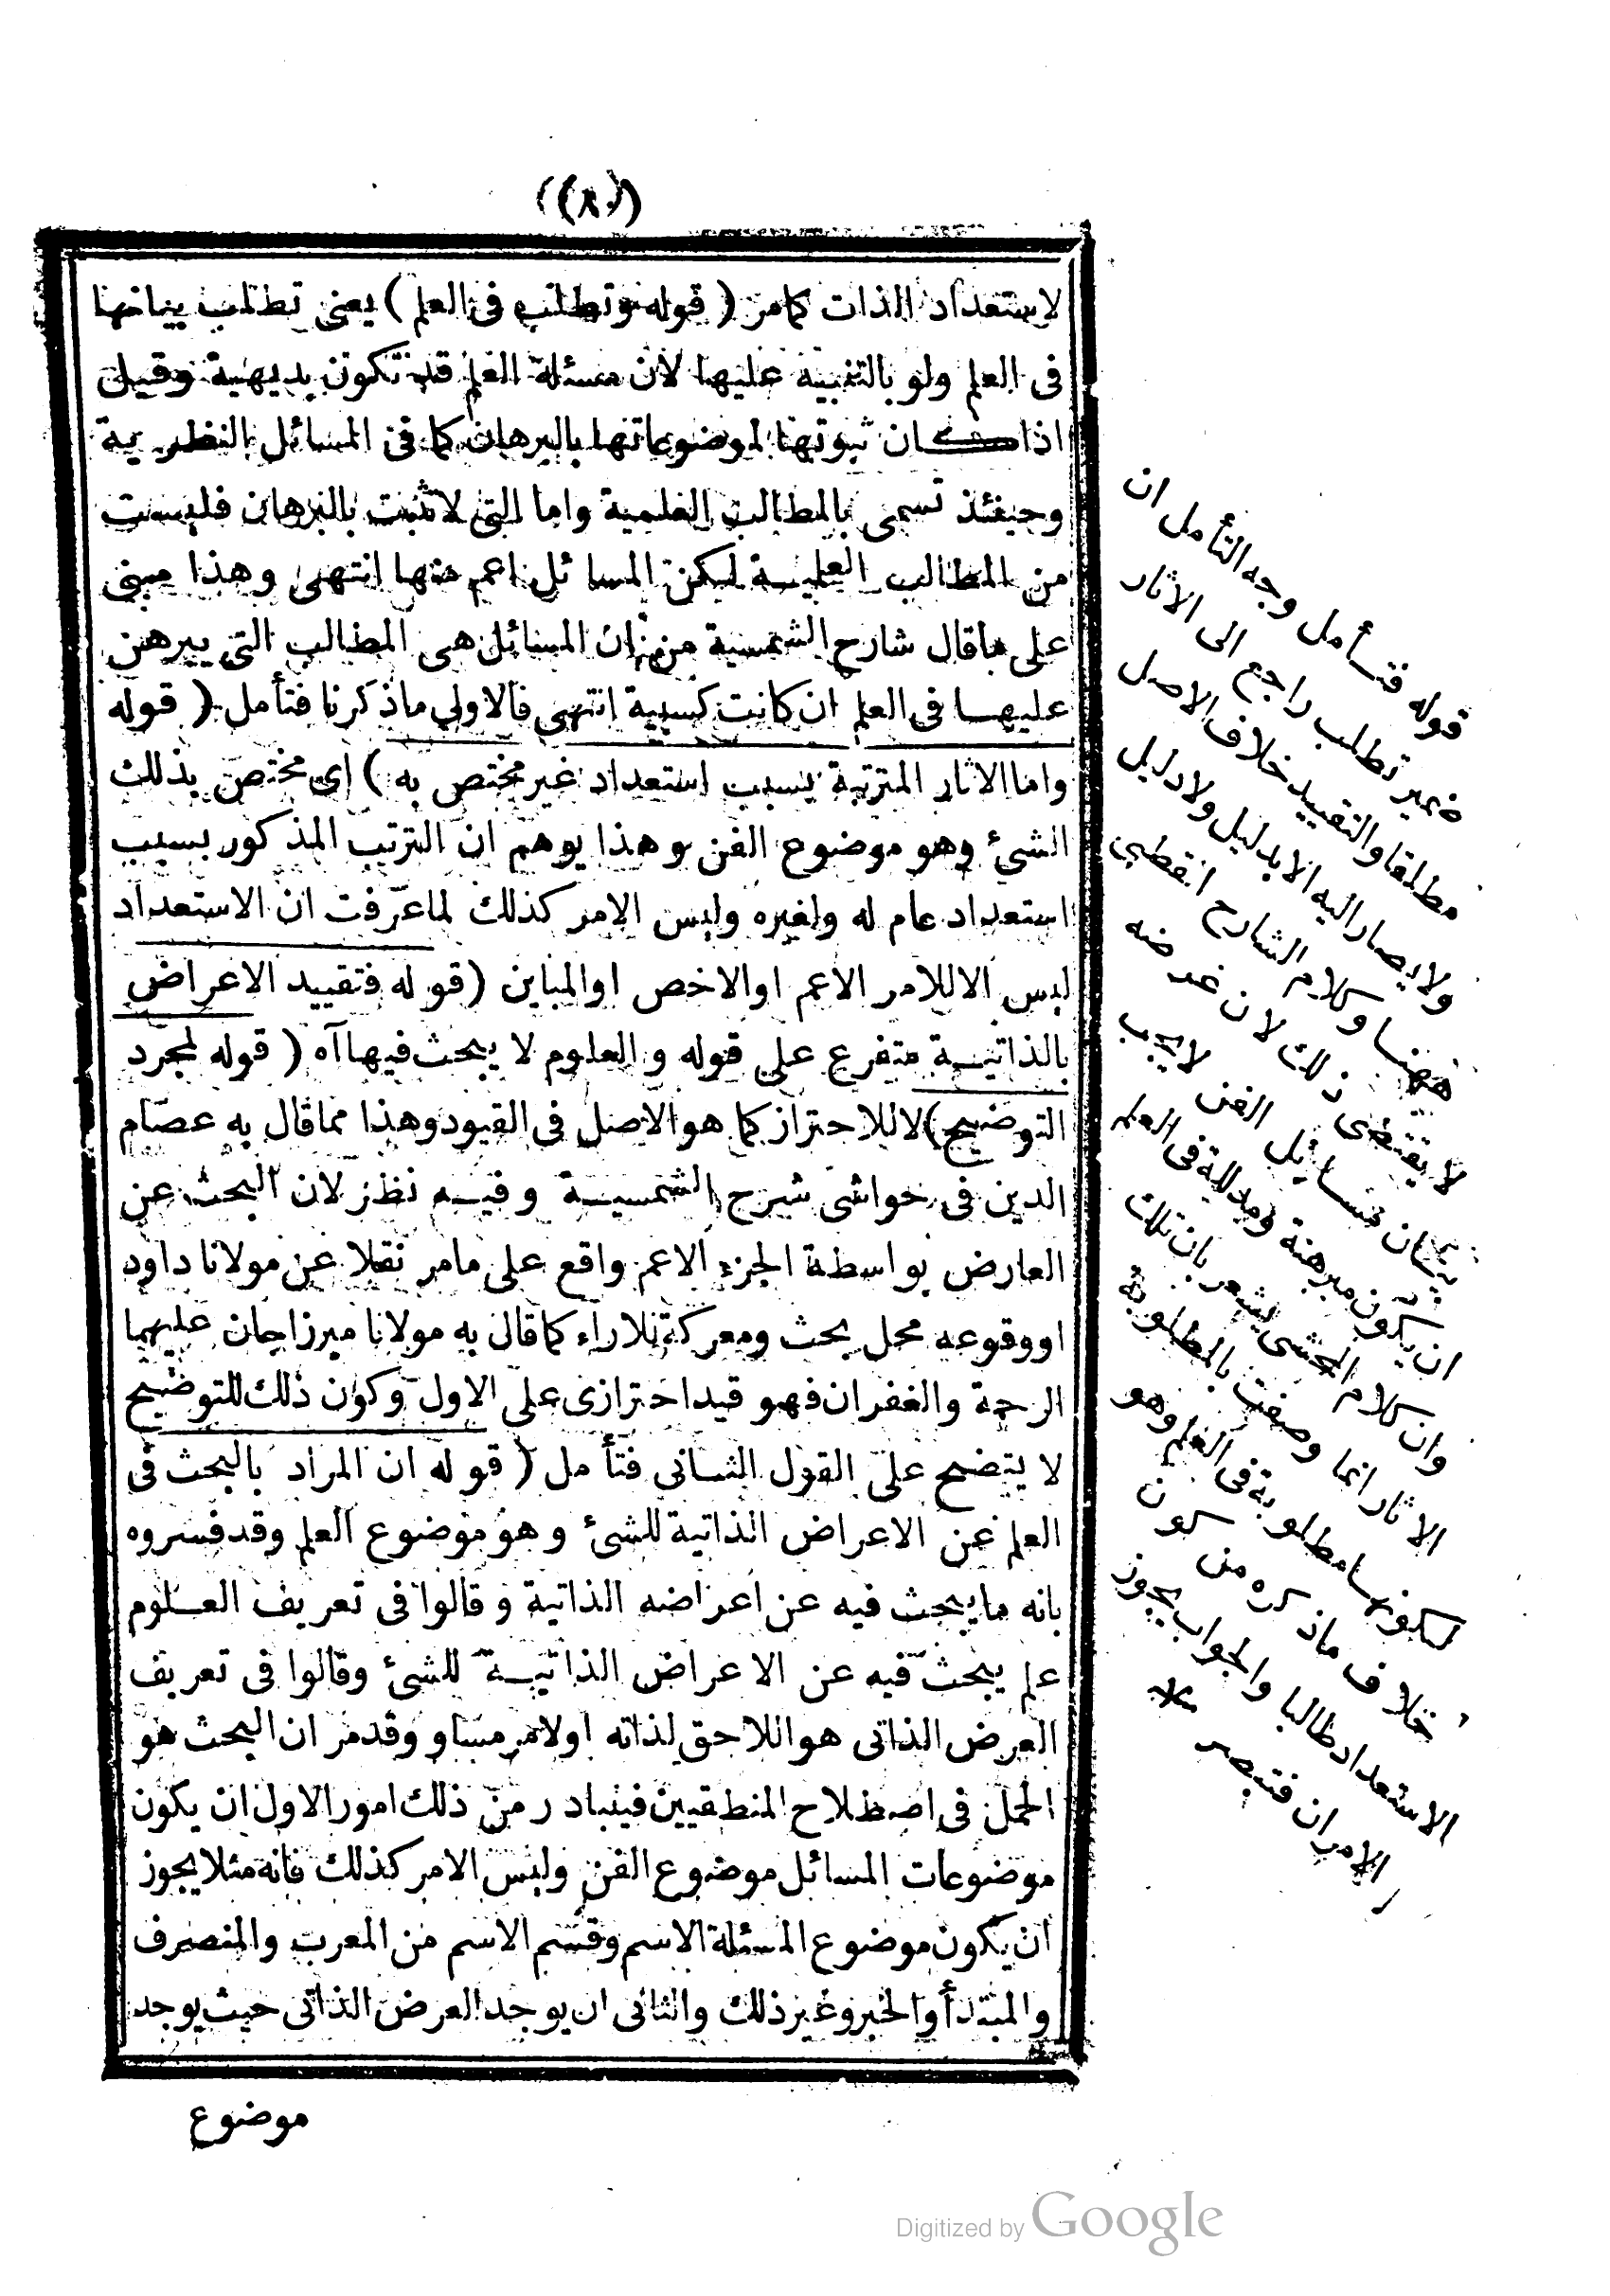 ((٨٠))
لاستعداد الذات كمامر ( قوله وتطلب فى العلم ) يعنى تطلب بيانها
فى العلم ولو بالتنبيه عليها لان مسئلة العلم قد تكون بديهية وقيل
اذا كان ثبوتها لموضوعاتها بالبرهان كما فى المسائل النظرية
وحينئذ تسمى بالمطالب العلمية واما التى لا تثبت بالبرهان فليست
من المطالب العلمية لكن المسائل اعم منها انتهى وهذا مبنى
على ماقال شارح الشمسية من ان المسائل هى المطالب التى يبرهن
عليها فى العلم ان كانت كسبية انتهى فالاولى ماذكرنا فتأمل ( قوله
واما الاثار المترتبة بسبب استعداد غير مختص به ) اى مختص بذلك
الشئ وهو موضوع الفن وهذا يوهم ان الترتب المذكور بسبب
استعداد عام له ولغيره وليس الامر كذلك لما عرفت ان الاستعداد
ليس الا للامر الاعم او الاخص او المباين (قوله فتقييد الاعراض
بالذاتية متفرع على قوله والعلوم لا يبحث فيها آه ( قوله لمجرد
التوضيح) لا للاحتراز كما هو الاصل فى القيود وهذا مماقال به عصام
الدين فى حواشى شرح الشمسية وفيه نظر لان البحث عن
العارض بواسطة الجزء الاعم واقع على مامر نقلا عن مولانا داود
او وقوعه محل بحث ومعركة للاراء كماقال به مولانا ميرزاجان عليهما
الرحمة والغفران فهو قيد احترازى على الاول وكون ذلك للتوضيح
لا يتضح على القول الثانى فتأمل ( قوله ان المراد بالبحث فى
العلم عن الاعراض الذاتية للشئ وهو موضوع العلم وقد فسروه
بانه مايبحث فيه عن اعراضه الذاتية وقالوا فى تعريف العلوم
علم يبحث فيه عن الاعراض الذاتية للشئ وقالوا فى تعريف
العرض الذاتى هو اللاحق لذاته او لامر مساو وقدمر ان البحث هو
الحمل فى اصطلاح المنطقيين فيتبادر من ذلك امور الاول ان يكون
موضوعات المسائل موضوع الفن وليس الامر كذلك فانه مثلا يجوز
ان يكون موضوع المسئلة الاسم وقسم الاسم من المعرب والمنصرف
والمبتدأ والخبر وغير ذلك والثانى ان يوجد العرض الذاتى حيث يوجد
موضوع
قوله فتأمل وجه التأمل ان
ضمير تطلب راجع الى الاثار
مطلقا والتقييد خلاف الاصل
ولا يصار اليه الا بدليل ولا دليل
ههنا وكلام الشارح القطبى
لا يقتضى ذلك لان غرضه
بيان مسائل الفن لا يجب
ان يكون مبرهنة ومدللة فى العلم
وان كلام المحشى يشعر بان تلك
الاثار انما وصفت بالمطلوبية
لكونها مطلوبة فى العلم وهو
خلاف ماذكره من كون
الاستعداد طالبا والجواب يجوز
الامران فتبصر
Digitized by Google